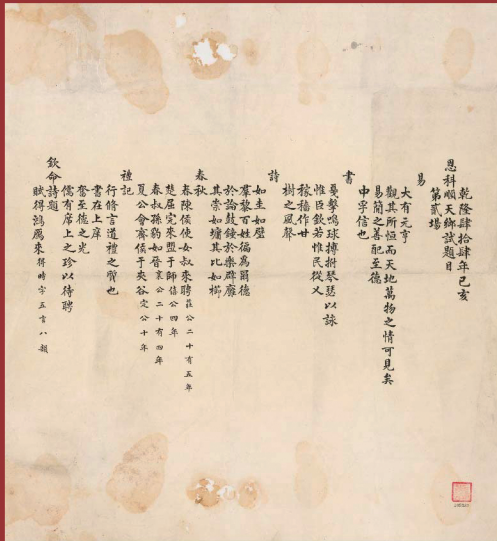 乾隆肆拾肆年己亥
恩科順天鄉試題目
第貳場
易
大有元亨
觀其所恒而天地萬物之情可見矣
易簡之善配至德
中孚信也
書
戛擊鳴球搏拊琴瑟以詠
惟臣欽若惟民從乂
稼穡作甘
樹之風聲
詩
如圭如璧
羣黎百姓徧為爾德
於論鼓鍾於樂辟廱
其崇如墉其比如櫛
春秋
春陳侯使女叔來聘莊公二十有五年
楚屈完來盟于師僖公四年
春叔孫豹如晉襄公二十有四年
夏公會齊侯于夾谷定公十年
禮記
行脩言道禮之質也
書在上庠
奮至德之光
儒有席上之珍以待聘
欽命詩題
賦得鴻鴈來得時字五言八韻